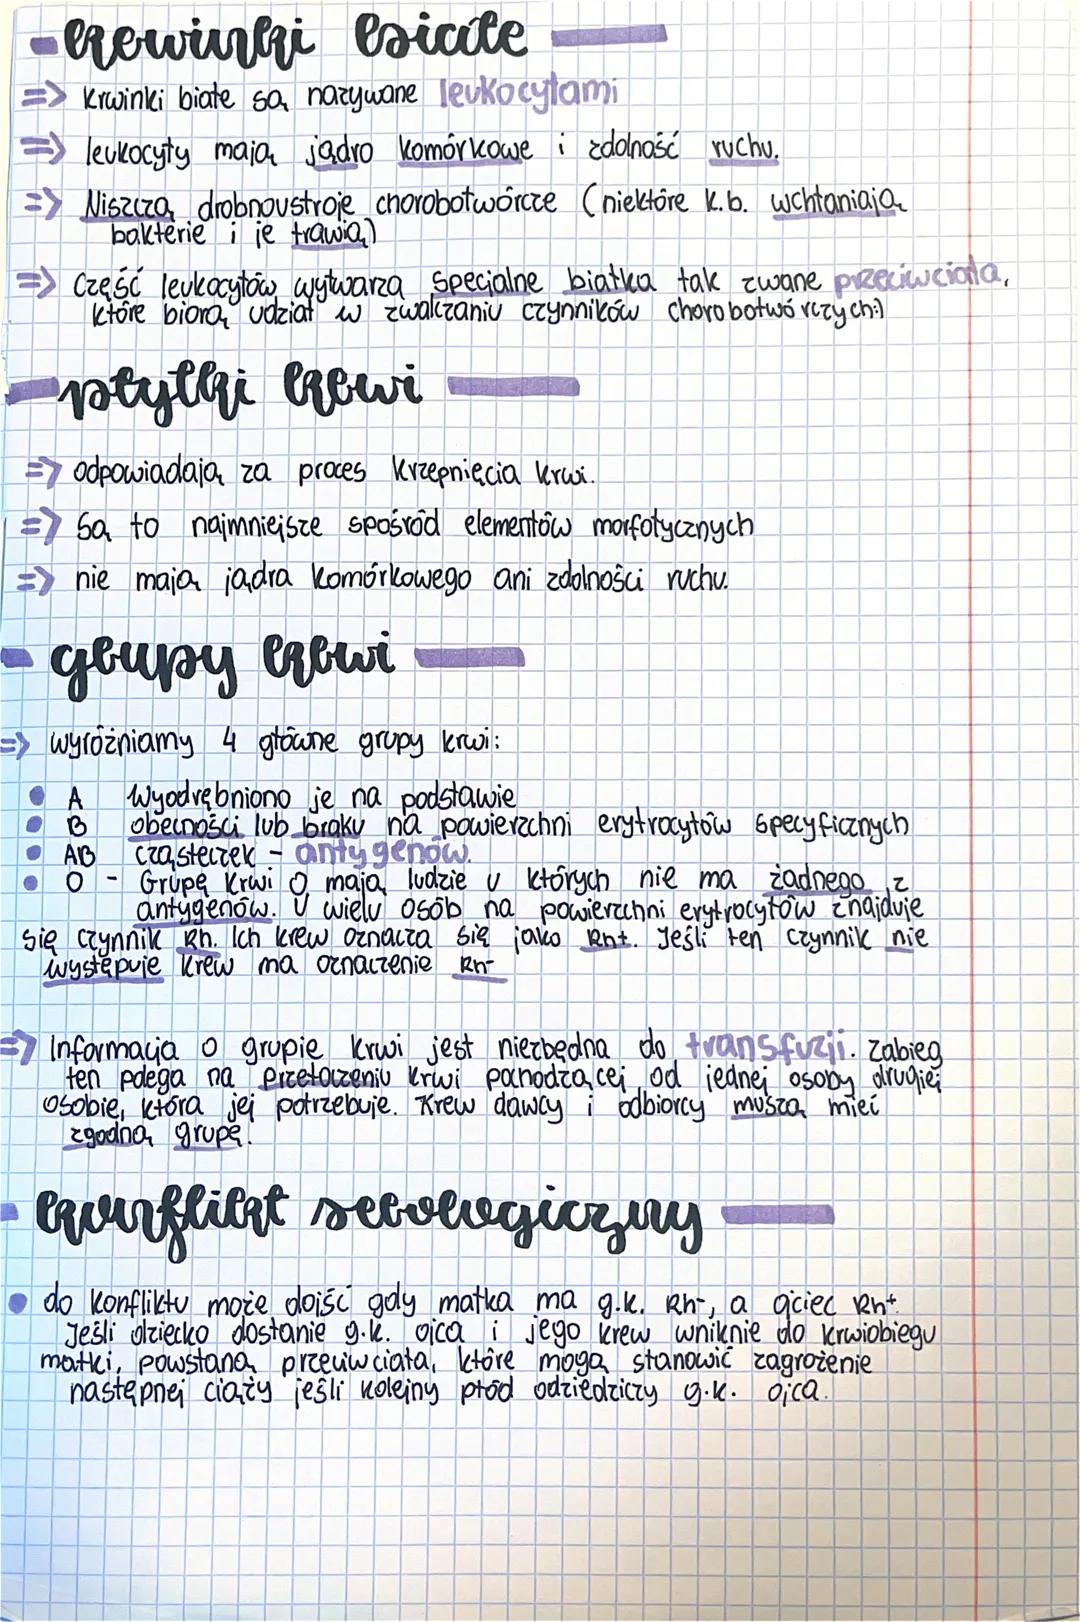 krwinki białe
=> Krwinki białe są nazywane leukocytami
=> leukocyty mają jądro komórkowe i zdolność ruchu.
=> Niszczą drobnoustroje chorobotwórcze (niektóre k.b. wchłaniają
bakterie i je trawią)
=> Część leukocytów wytwarza specjalne białka tak zwane przeciwciała,
które biorą udział w zwalczaniu czynników chorobotwórczych:)
płytki krwi
=> odpowiadają za proces krzepnięcia krwi.
=> Są to najmniejsze spośród elementów morfotycznych
=> nie mają jądra komórkowego ani zdolności ruchu.
grupy krwi
=> wyróżniamy 4 główne grupy krwi:
• A Wyodrębniono je na podstawie
• B obecności lub braku na powierzchni erytrocytów specyficznych
• AB cząsteczek - antygenów.
• O - Grupę krwi O mają ludzie u których nie ma żadnego z
antygenów. U wielu osób na powierzchni erytrocytów znajduje
się czynnik Rh. Ich krew oznacza się jako Rh+. Jeśli ten czynnik nie
występuje krew ma oznaczenie Rh-
=> Informacja o grupie krwi jest niezbędna do transfuzji. Zabieg
ten polega na przetoczeniu krwi pochodzącej od jednej osoby drugiej
osobie, która jej potrzebuje. Krew dawcy i odbiorcy muszą mieć
zgodną grupę.
konflikt serologiczny
• do konfliktu może dojść gdy matka ma g.k. Rh-, a ojciec Rh+.
Jeśli dziecko dostanie g.k. ojca i jego krew wniknie do krwiobiegu
matki, powstaną przeciwciała, które mogą stanowić zagrożenie
następnej ciąży jeśli kolejny płód odziedziczy g.k. ojca.